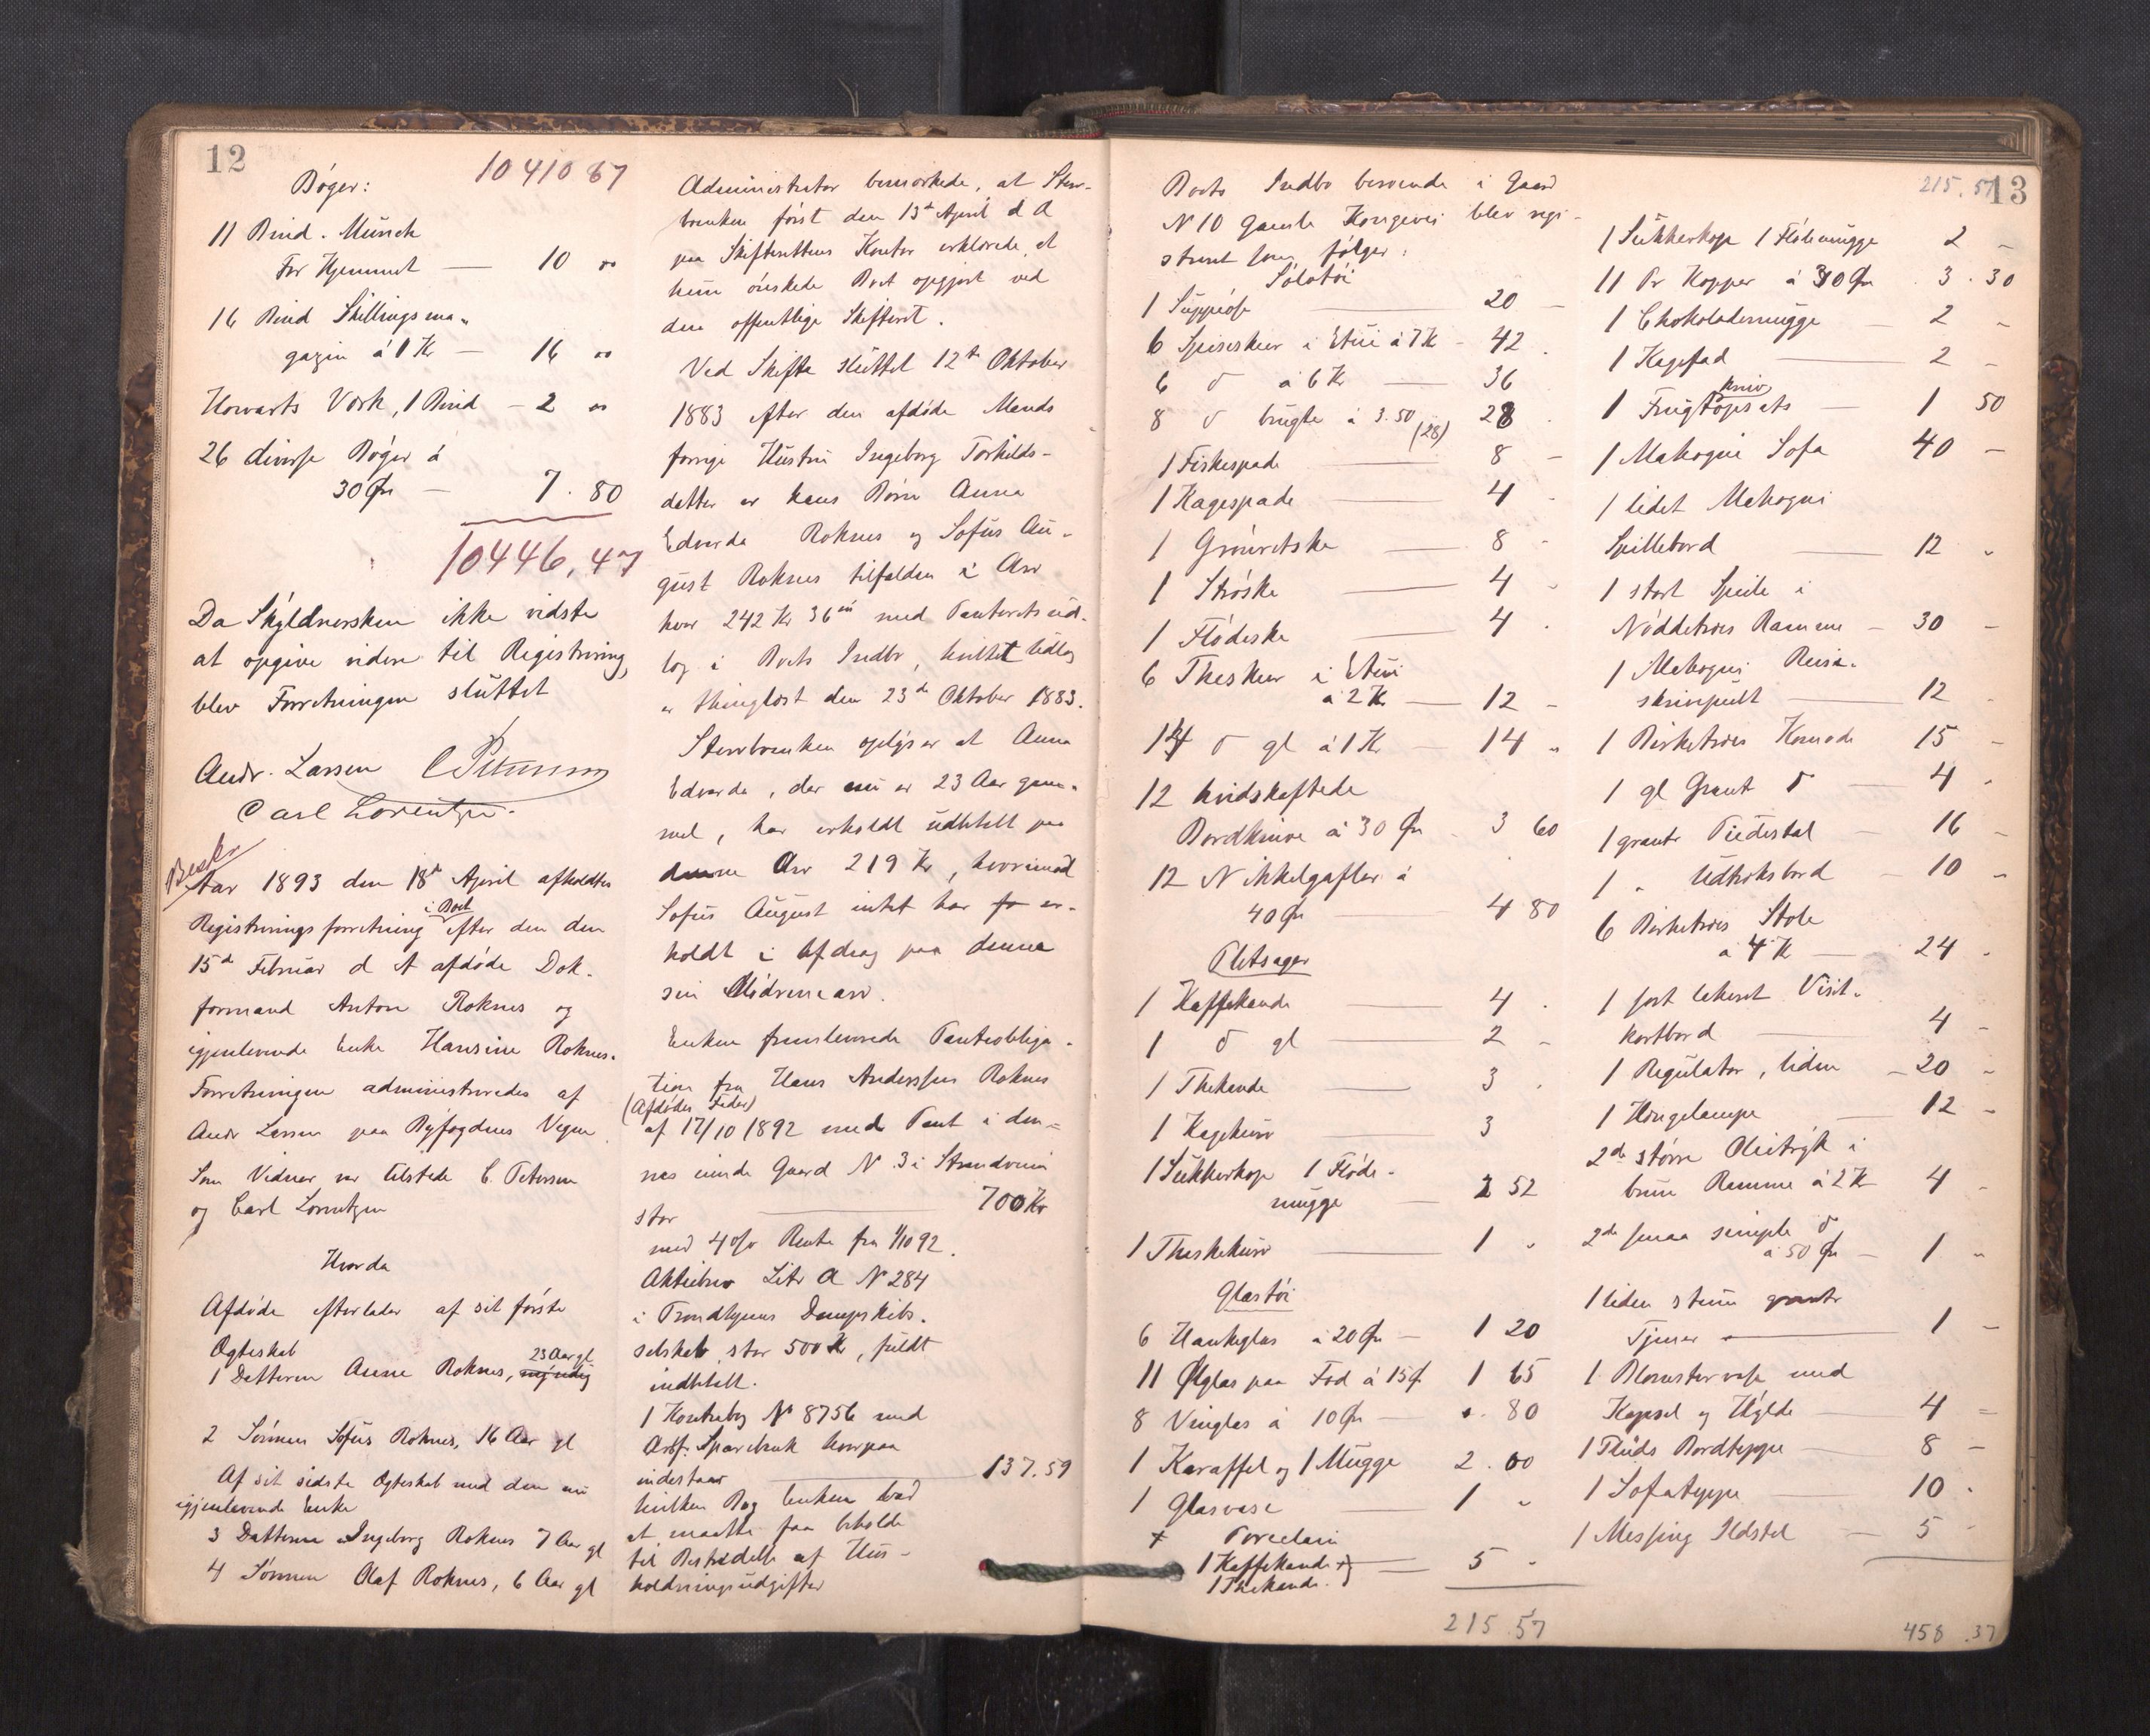 12
Bøger:
10410 67
11 Bind. Münch
For Hjemmet — 10 "
16 Bind Skillingsma-
gazin á 1 Kr — 16 "
Howarts Værk, 1 Bind — 2 "
26 diverse Bøger á
30 Øre — 7.80
10446,47
Da Skyldnersken ikke vidste
at opgive videre til Registrering,
blev Forretningen sluttet
Andr. Larsen C Petersen
Carl Lorentzen.
Beskr
Aar 1893 den 18de April afholdtes
Registreringsforretning i Boet efter den den
15de Februar d A afdøde Dok-
formand Anton Roknes og
igjenlevende Enke Hansine Roknes.
Forretningen administreredes af
Andr Larsen paa Byfogdens Vegne
Som Vidner var tilstede C. Petersen
og Carl Lorentzen
Hvorda
Afdøde efterlader af sit første
Ægteskab
1 Datteren Anna Roknes, myndig 23 Aar gl
2 Sønnen Sofus Roknes, 16 Aar gl
Af sit sidste Ægteskab med den nu
igjenlevende Enke
3 Datteren Ingeborg Roknes 7 Aar gl
4 Sønnen Olaf Roknes, 6 Aar gl
Administrator bemærkede, at Sterv-
boenken først den 13de April d A
paa Skifterettens Kontor erklærede, at
hun ønskede Boet opgjort ved
den offentlige Skifteret.
Ved Skifte sluttet 12te Oktober
1883 efter den afdøde Mands
forrige Hustru Ingeborg Torkilds-
datter er hans Børn Anna
Edvarda Roknes og Sofus Au-
gust Roknes tilfalden i Arv
hver 242 Kr 36 øre med Panterets ud-
læg i Boets Indbo, hvilket Udlæg
er thinglæst den 23de Oktober 1883.
Stervboenken oplyser at Anna
Edvarda, der nu er 23 Aar gam-
mel, har erholdt udbetalt paa
denne Arv 219 Kr, hvorimod
Sofus August intet har fa er-
holdt i Afdrag paa denne
sin Mødrenearv.
Enken fremleverede Panteobliga-
tion fra Hans Anderssen Roknes
(Afdødes Fader)
af 17/10 1892 med Pant i den-
nes eiende Gaard N 3 i Strandveien
stor — 700 Kr
med 4 o/o Rente fra 1/10 92.
Aktiebrev Litr A N 284
i Trondhjems Dampskibs-
selskab stor 500 Kr, fuldt
indbetalt.
1 Kontrabog N 8756 med
Arbf. Sparebank hvorpaa
indestaar — 137.59
hvilken Bog Enken bad
at maatte faa beholde
til Bestridelse af Hus-
holdningsudgifter
Boets Indbo beroende i Gaard
N 10 Gamle Kongevei blev regi-
streret som følger:
Sølvtøi
1 Suppeøse — 20 -
6 Spiseskeer i Etui á 7 Kr - 42 .
6 do á 6 Kr — 36
8 do brugte á 3.50 (28) 28 .
1 Fiskespade — 8 -
1 Kagespade — 4 -
1 Grønretske — 8 -
1 Strøske — 4 -
1 Flødeske — 4 .
6 Theskeer i Etui
á 2 Kr — 12 -
14 do gl á 1 Kr 14 "
12 hvidskaftede
Bordknive á 30 Øre - 3 60
12 Nikkelgafler á
40 Øre — 4 80
Pletsager
1 Kaffekande — 4 .
1 do gl — 2 -
1 Thekande — 3 .
1 Kagekurv — 3
1 Sukkerkop 1 Fløde-
mugge — 2 52
1 Theskekurv — 1 "
Glastøi
6 Hankeglas á 20 Øre — 1 20
11 Ølglas paa Fod á 15 Ø 1 65
8 Vinglas á 10 Øre — . 80
1 Karaffel og 1 Mugge 2.00
1 Glasvase — 1 "
+ Porcelæn
1 Kaffekande og — 5 -
1 Thekande.
215.57
215.57
13
1 Sukkerkop 1 Flødemugge 2 -
11 Pr Kopper á 30 Øre . 3.30
1 Chokolademugge — 2 -
1 Kagefad — 2 -
1 Frugtopsats — 1 50
kniv
1 Mahogni Sofa 40 -
1 lidet Mahogni
Spillebord — 12 "
1 stort Speile i
Nøddetræes Ramme — 30 -
1 Mahogni Reise-
skrivepult — 12 -
1 Birketræes Komode 15 -
1 gl Grant do — 4 -
1 grantr Piedestal — 16 -
1 " Udtræksbord — 10 "
6 Birketræes Stole
á 4 Kr — 24 -
1 sort lakeret Visit-
kortbord — 4 -
1 Regulator, liden — 20 -
1 Hængelampe — 12 -
2de større Olietryk i
brune Ramme á 2 Kr 4 -
2de smaa simple do
á 50 Øre — 1 "
1 liden grantr
Tjener — 1 -
1 Blomstervase med
Kapsel og Hylde — 4 -
1 Pluds Bordteppe — 8 -
1 Sofateppe — 10 .
1 Messing Ildstel — 5 -
458.37